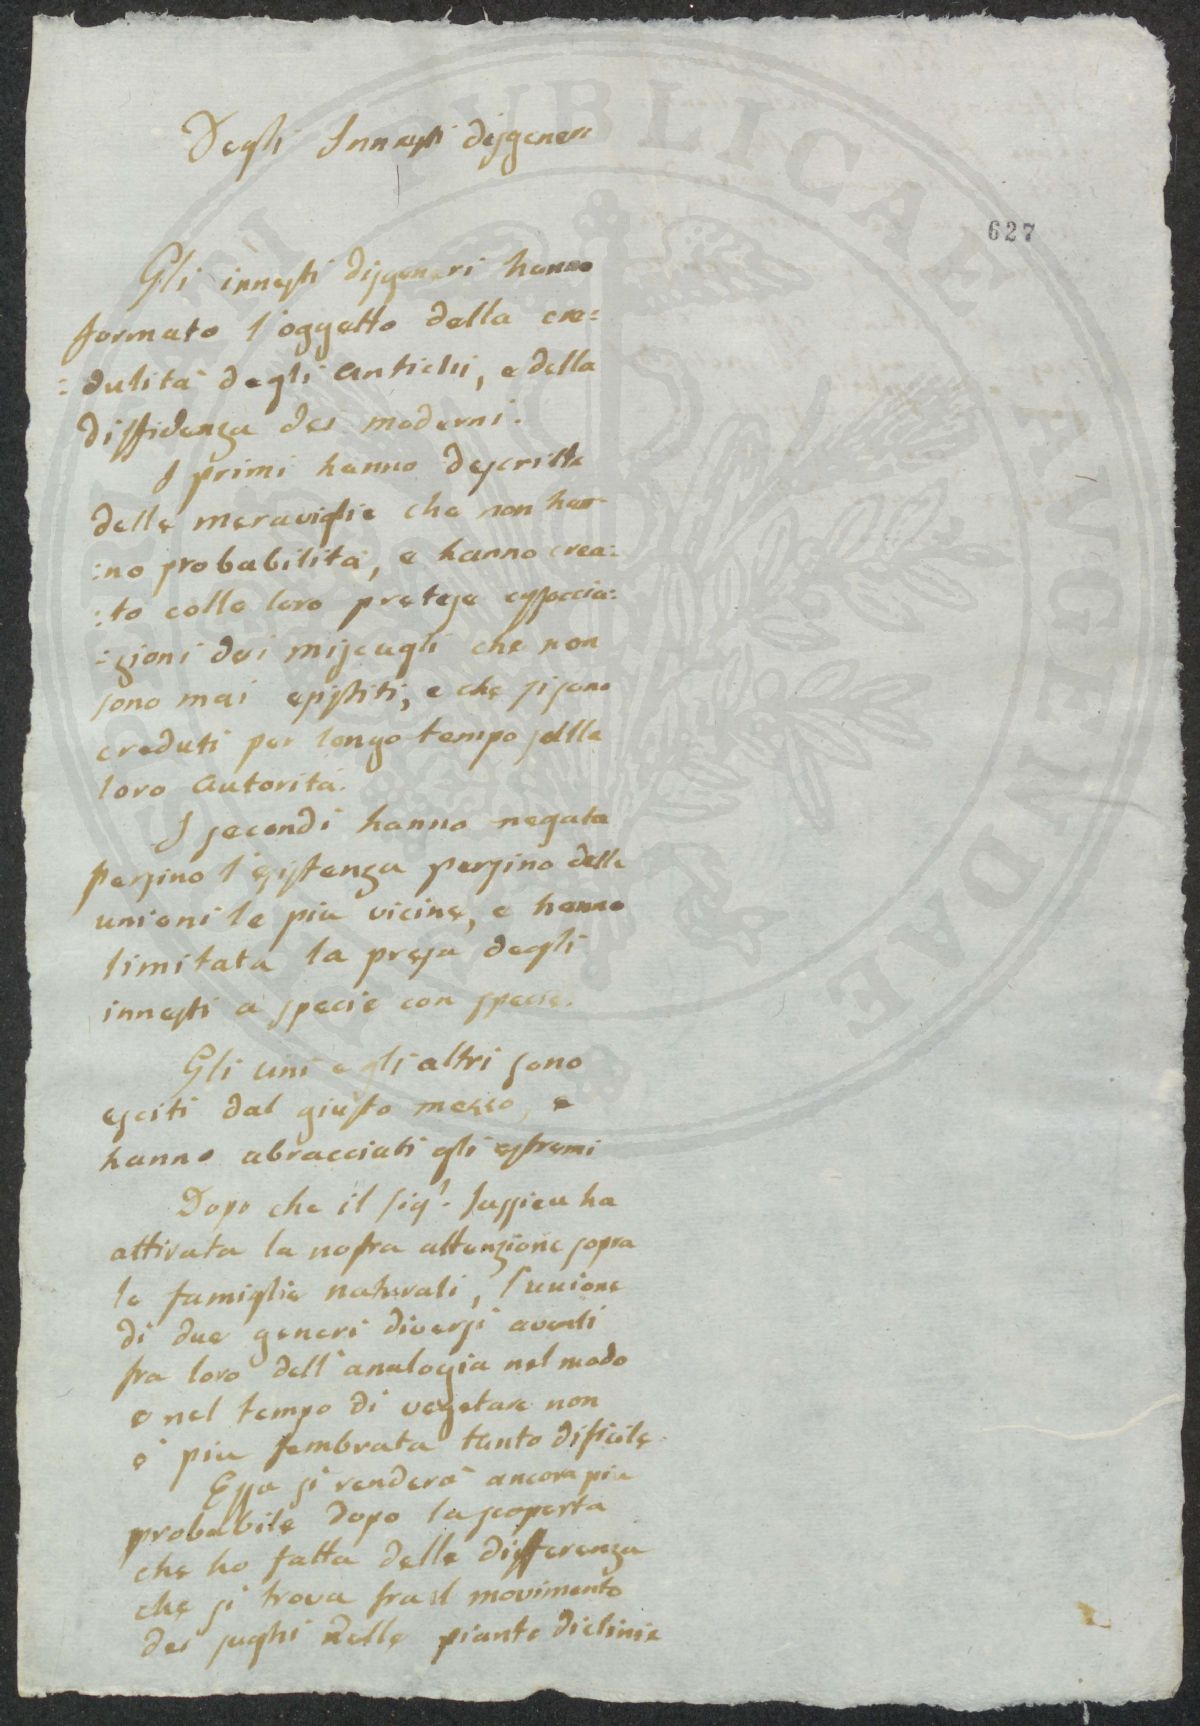 Degli Innesti disgeneri
627
Gli innesti disgeneri hanno
formato l'oggetto della cre=
=dulità degli Antichi, e della
diffidenza dei moderni.
I primi hanno descritte
delle meraviglie che non han
:no probabilità, e hanno crea:
:to colle loro pretese associa:
:zioni dei miscugli che non
sono mai esistiti, e che si sono
creduti per longo tempo sulla
loro autorità.
I secondi hanno negata
persino l'esistenza persino delle
unioni le più vicine, e hanno
limitata la presa degli
innesti a specie con specie.
Gli uni e gli altri sono
esciti dal giusto mezzo, e
hanno abracciati gli estremi
Dopo che il Sigr. Jussieu ha
attirata la nostra attenzione sopra
le famiglie naturali, l'unione
di due generi diversi aventi
fra loro dell'analogia nel modo
e nel tempo di vegetare non
è più sembrata tanto dificile.
Essa si renderà ancora più
probabile dopo la scoperta
che ho fatta delle differenza
che si trova fra il movimento
dei sughi nelle piante diclinie
PUBLICAE AUGENDAE